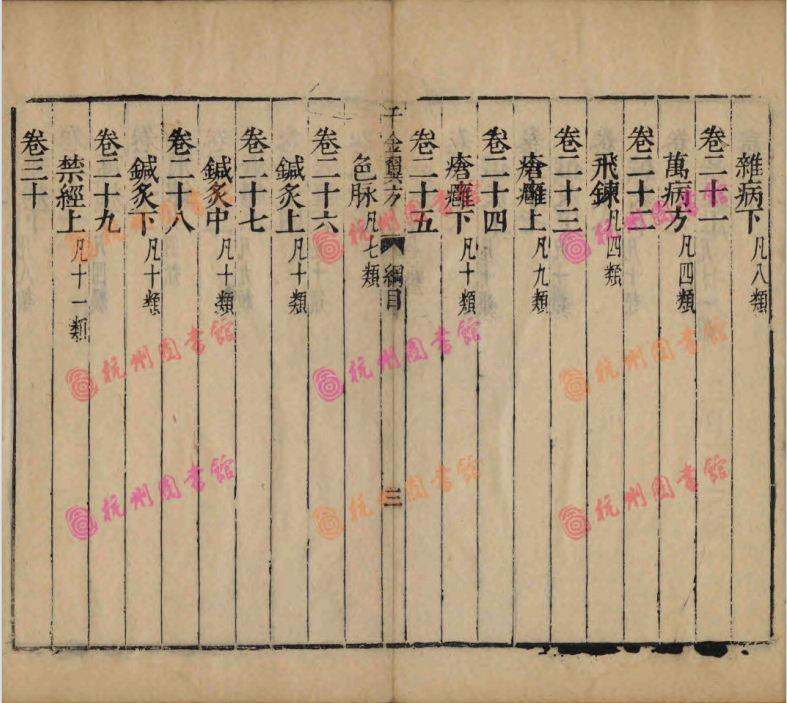 雜病下凡八類
卷二十一
萬病方凡四類
卷二十二
飛鍊凡四類
卷二十三
瘡癰上凡九類
卷二十四
瘡癰下凡十類
卷二十五
千金翼方 綱目 三
色脉凡七類
卷二十六
鍼灸上凡十類
卷二十七
鍼灸中凡十類
卷二十八
鍼灸下凡十類
卷二十九
禁經上凡十一類
卷三十
杭州圖書館
杭州圖書館
杭州圖書館
杭州圖書館
杭州圖書館
杭州圖書館
杭州圖書館
杭州圖書館
杭州圖書館